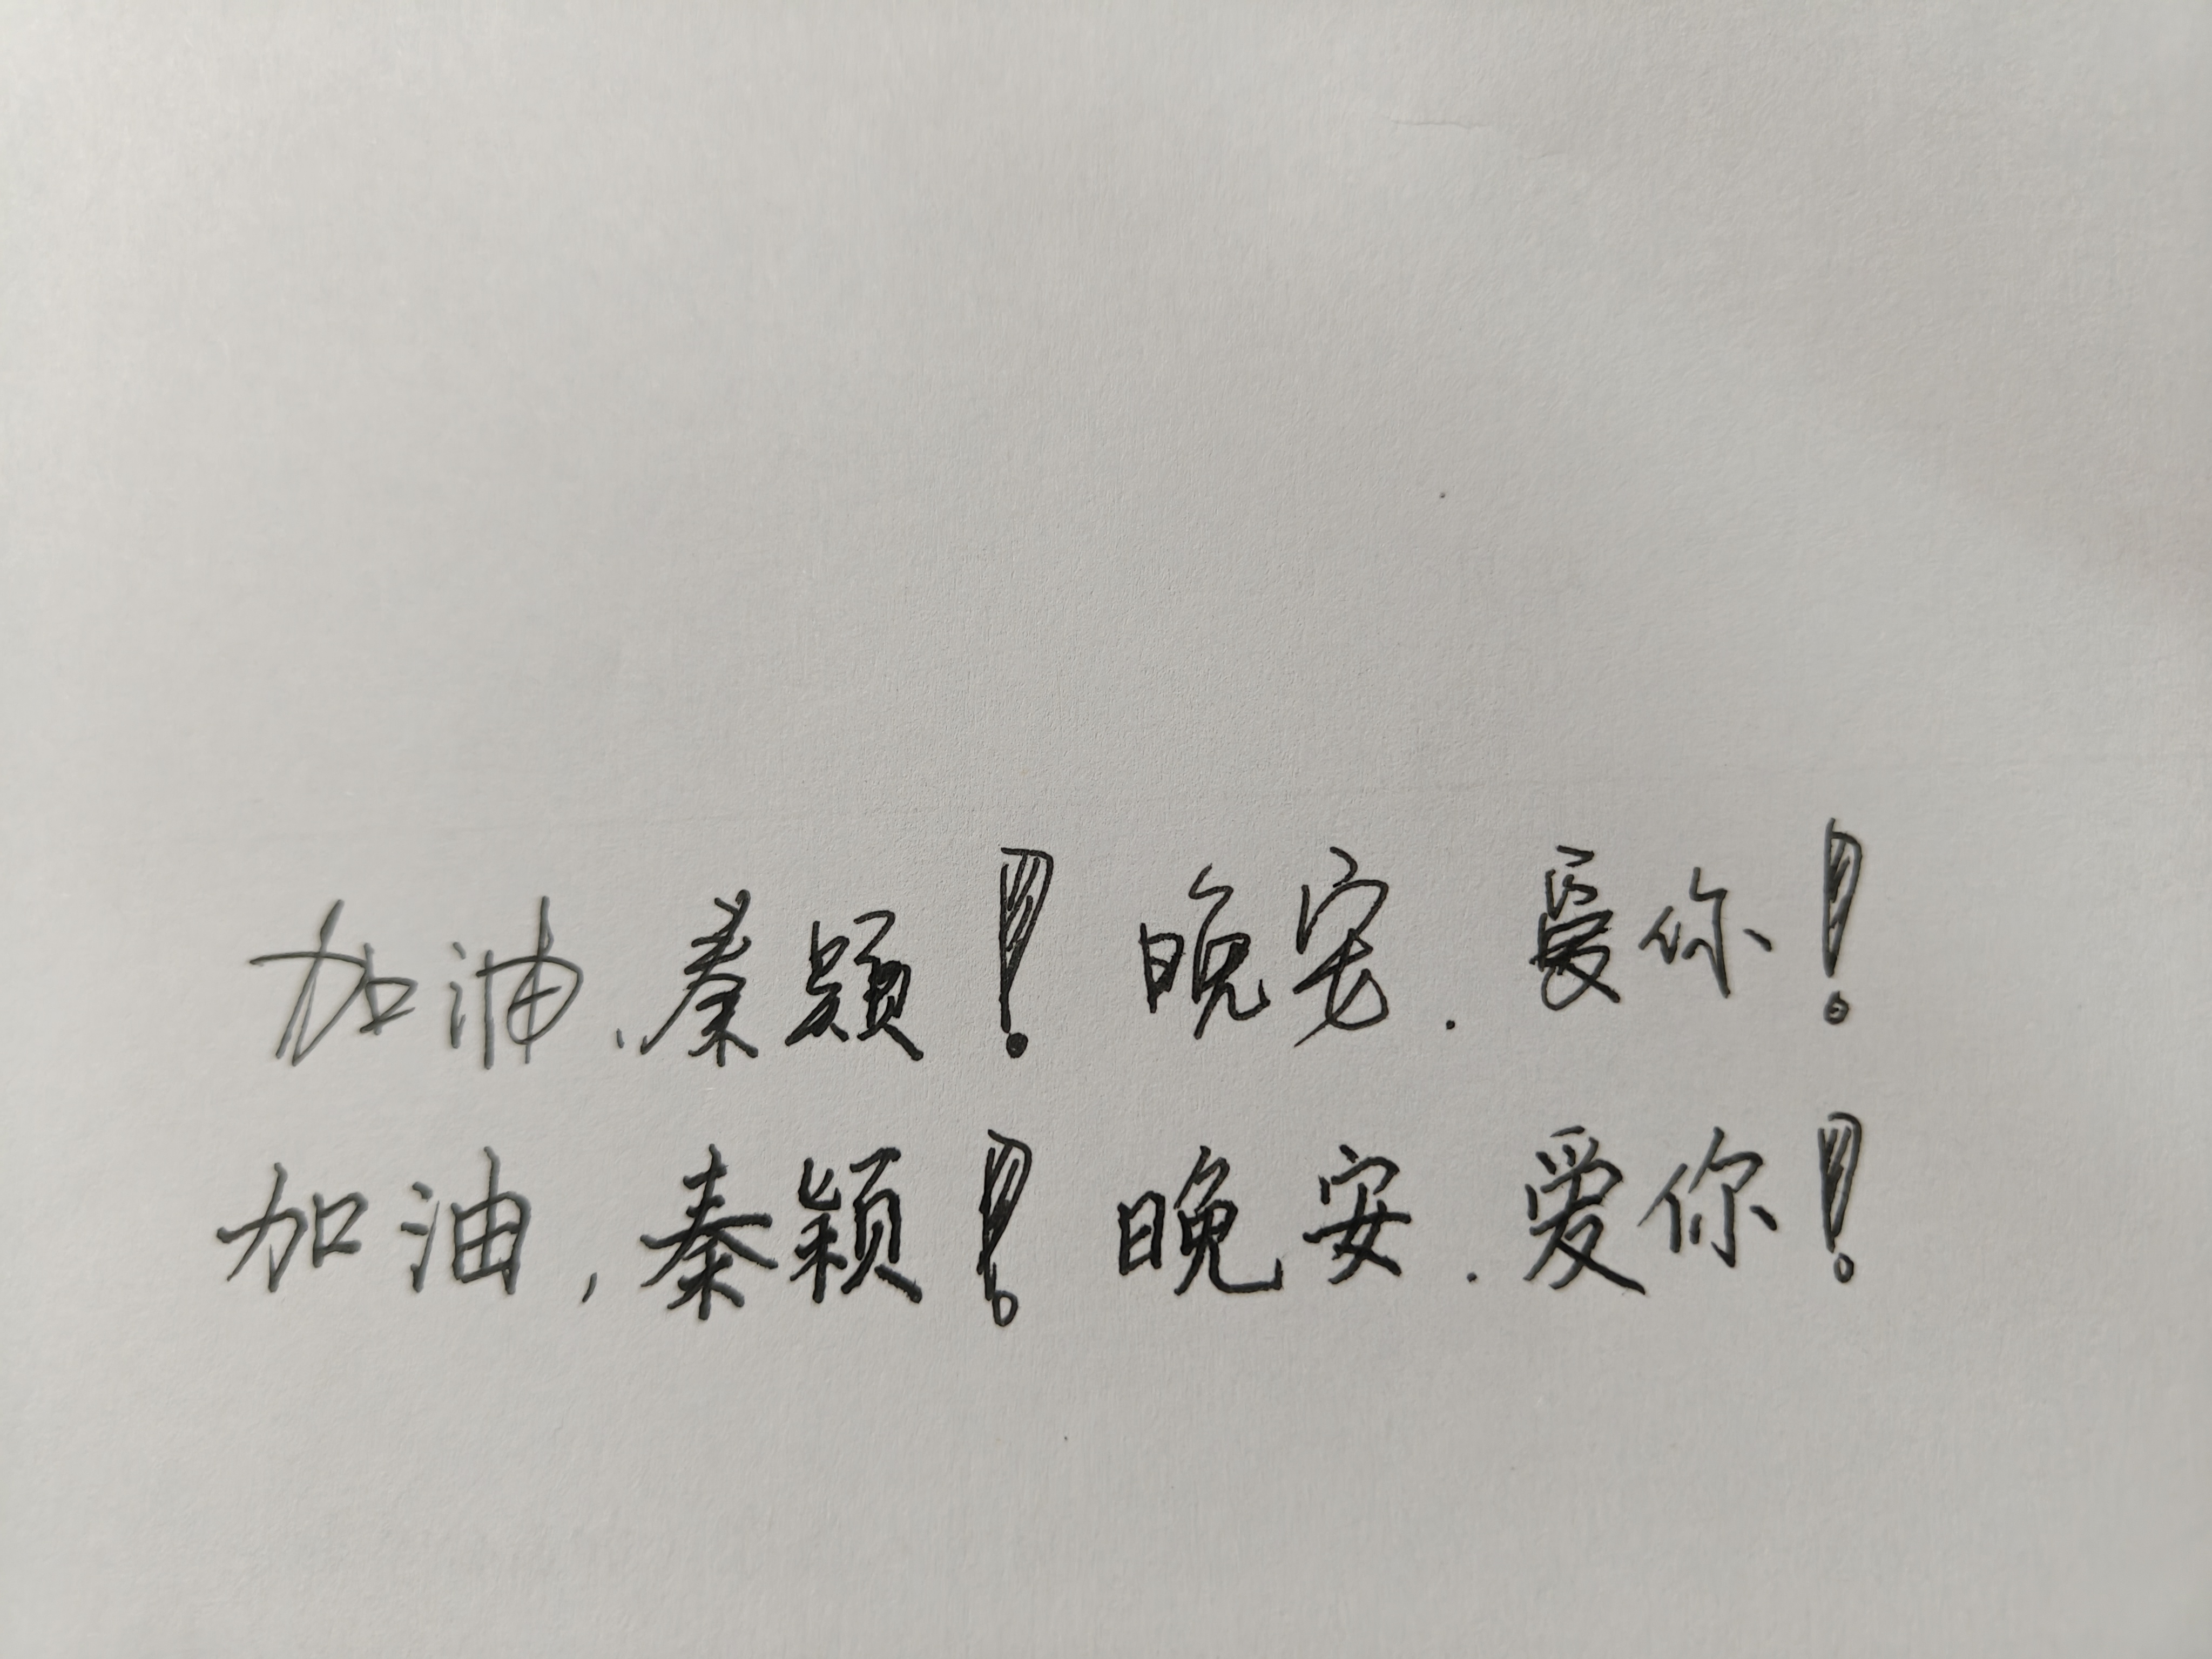 加油、秦颖！晚安.爱你！
加油，秦颖！晚安.爱你！